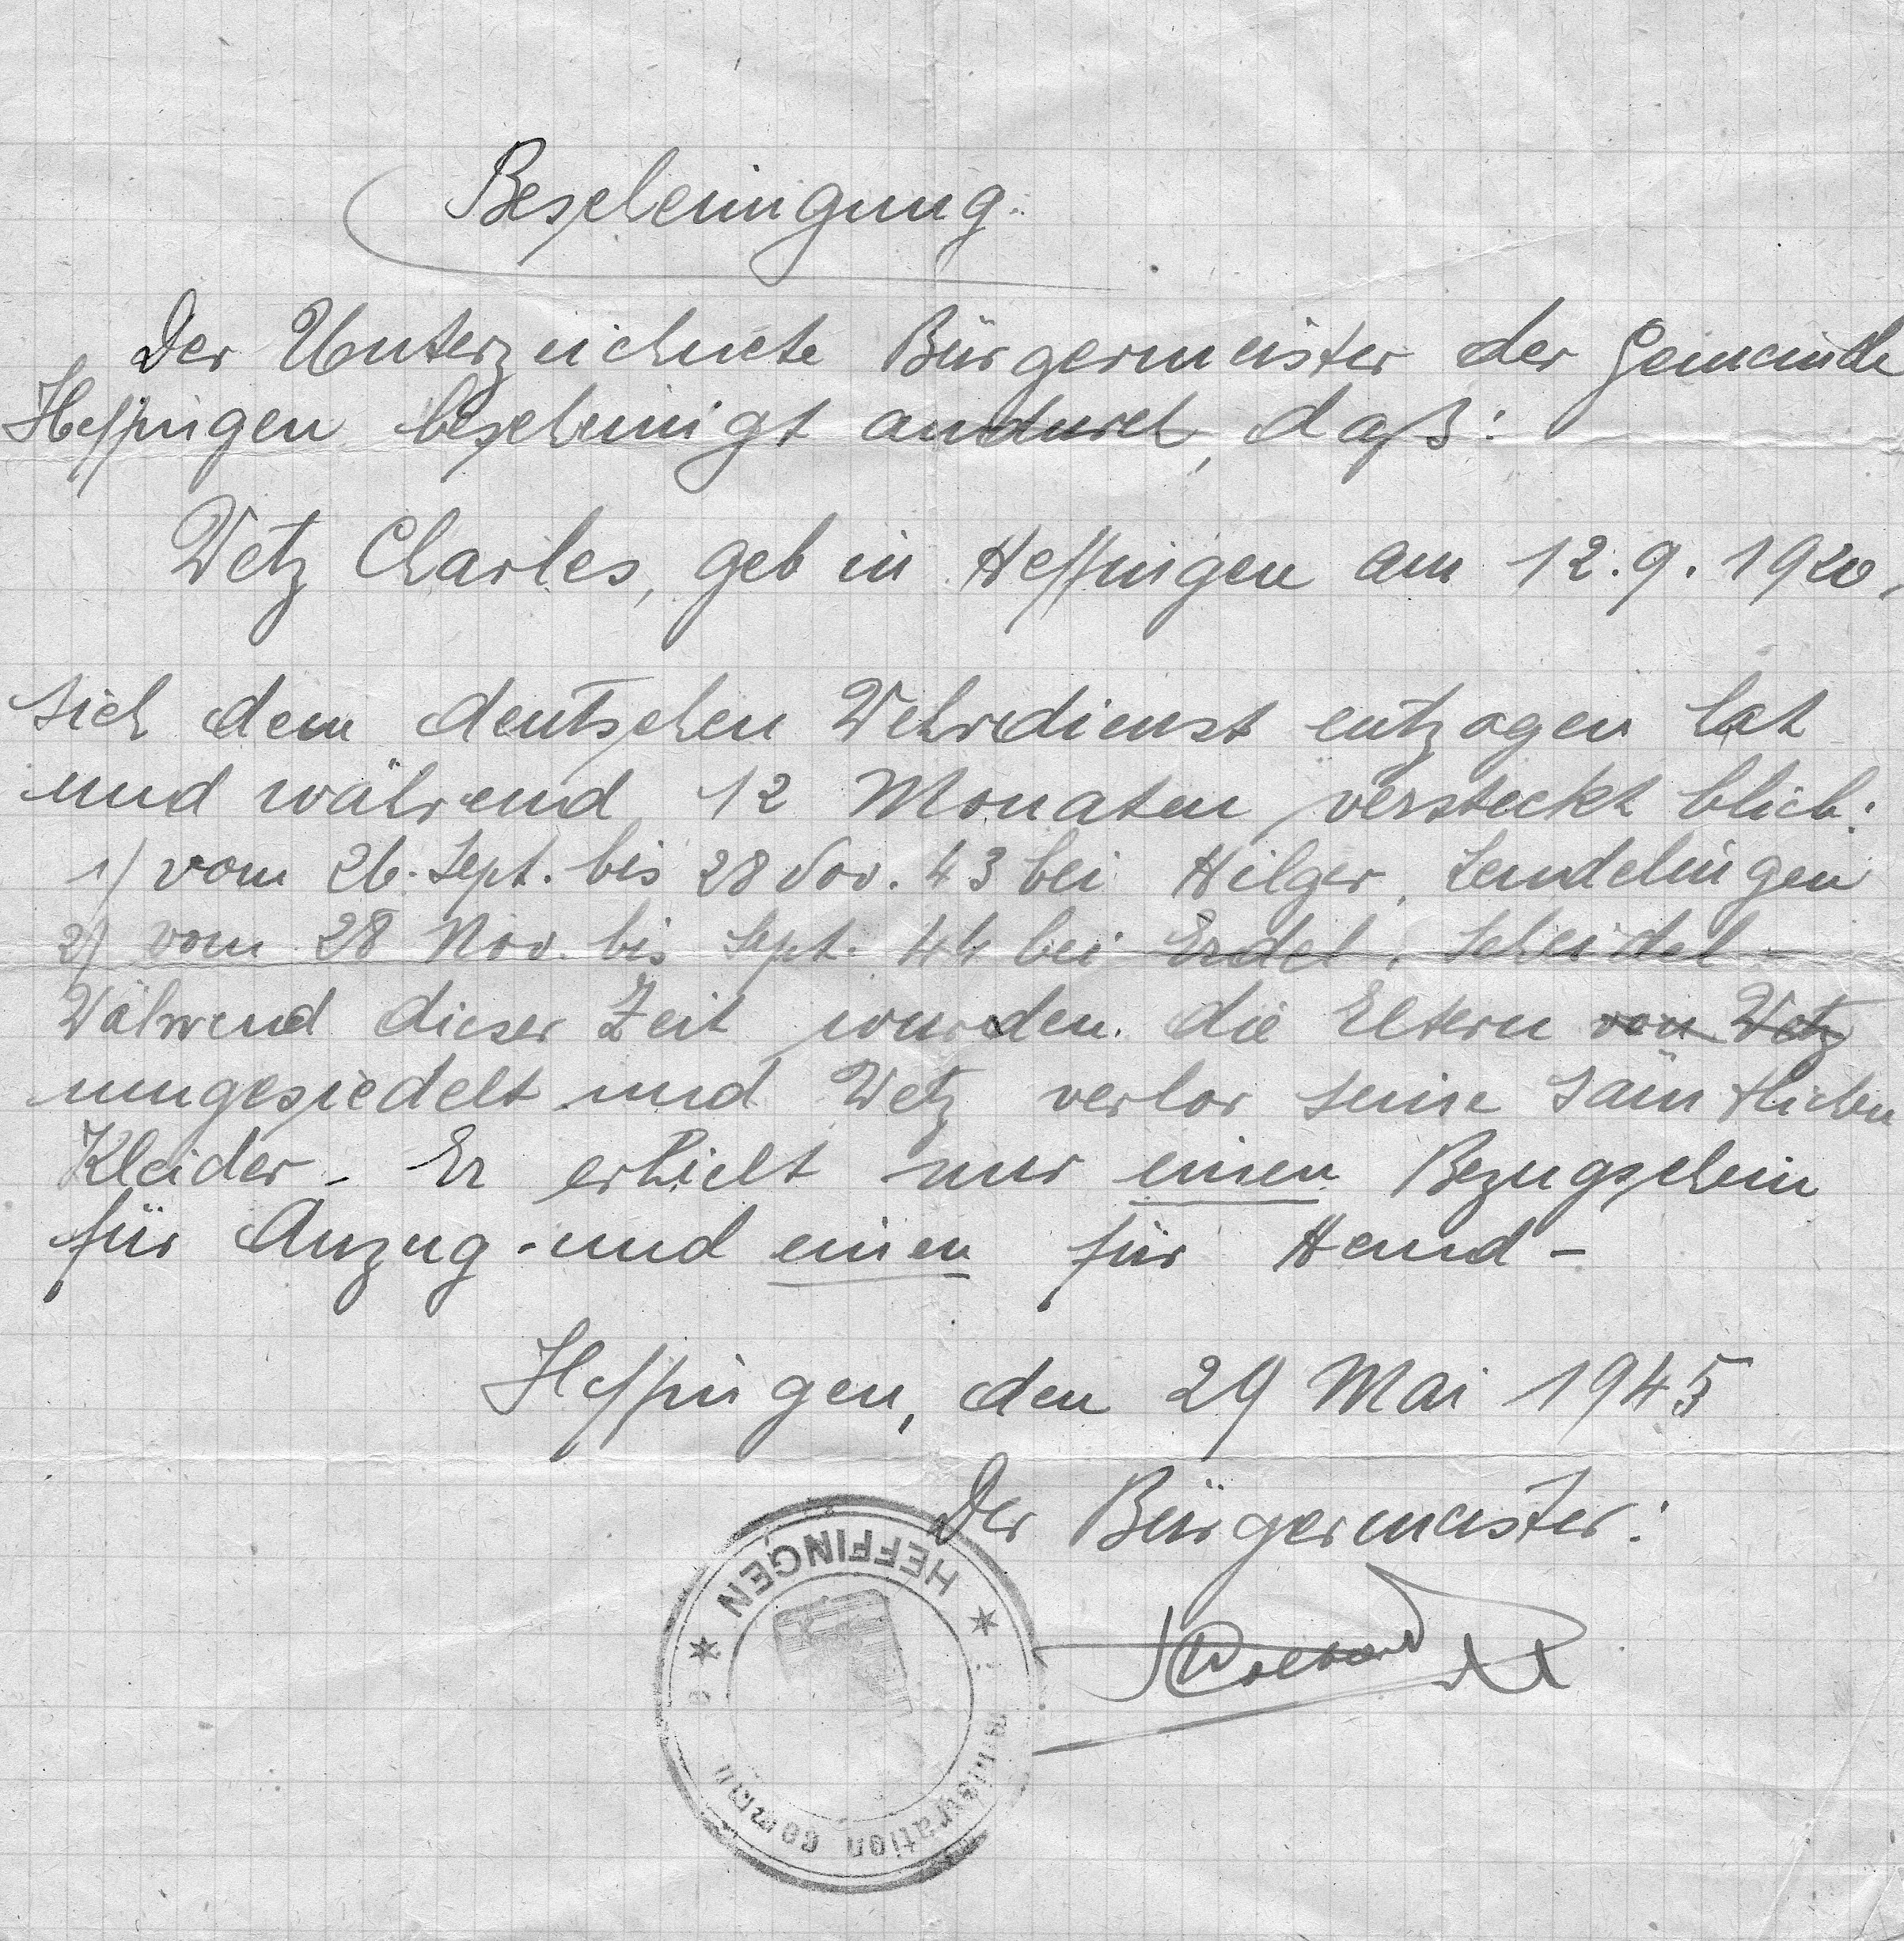 Bescheinigung.
Der Unterzeichnete Bürgermeister der Gemeinde
Heffingen bescheinigt andurch, daß:
Wetz Charles, geb in Heffingen am 12.9.1920,
sich dem deutschen Wehrdienst entzogen hat
und während 12 Monaten versteckt blieb:
1) vom 26. Sept. bis 28 Nov. 43 bei Hilger,
2) vom 28 Nov. bis Sept. 44 bei Erdel, Scheidel -
Während dieser Zeit wurden die Eltern von Wetz
umgesiedelt und Wetz verlor seine sämtlichen
Kleider - Er erhielt nur einen Bezugschein
für Anzug - und einen für Hemd -
Heffingen, den 29 Mai 1945
Der Bürgermeister:
HEFFINGEN